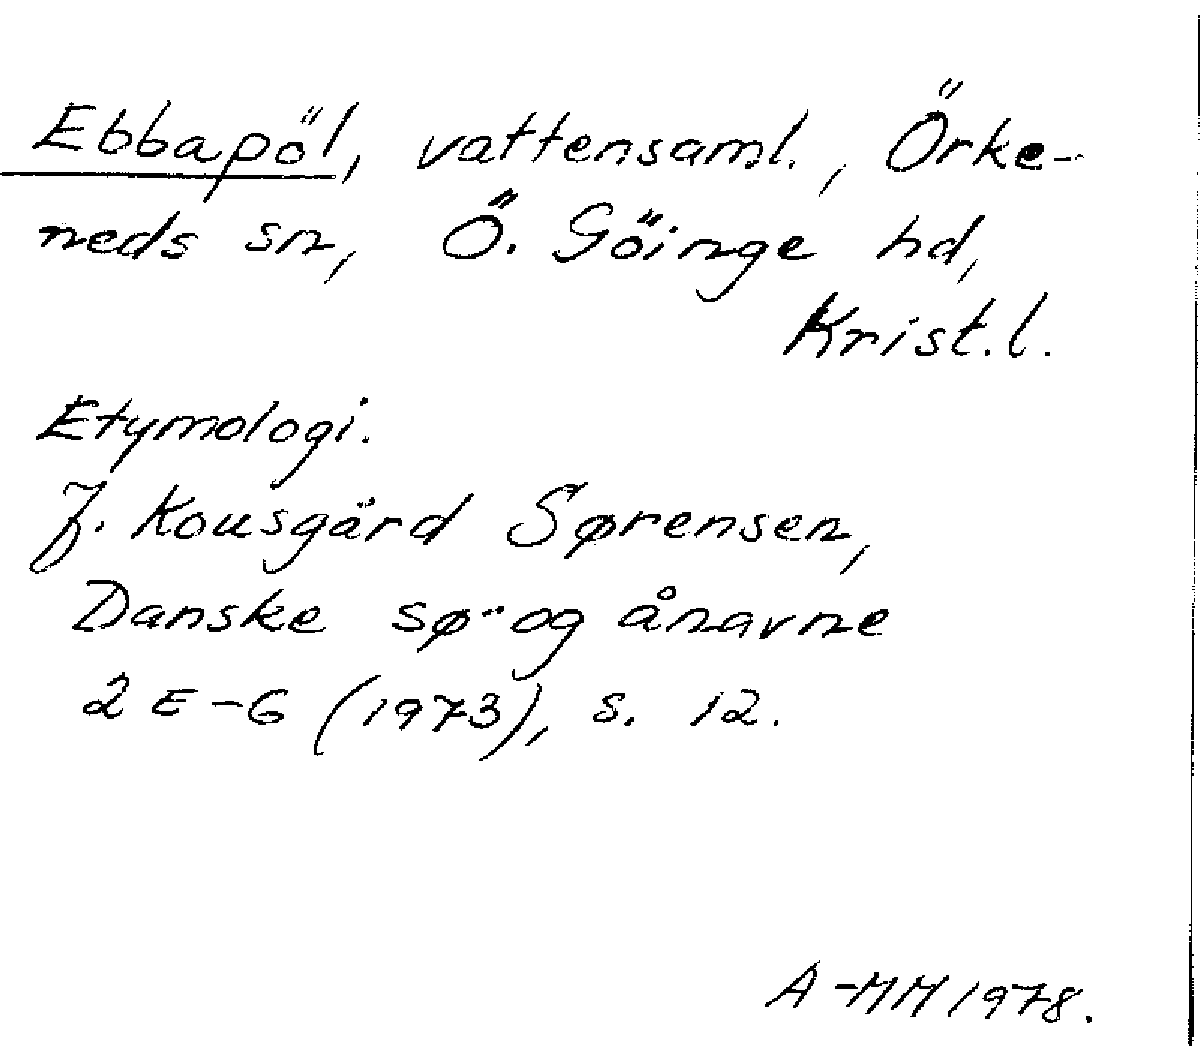 Ebbapöl, vattensaml., Örke-
neds sn, Ö. Göinge hd,
Krist.l.
Etymologi.
J. Kousgård Sørensen,
Danske sø- og ånavne
2 E-G (1973), s. 12.
A-MM 1978.